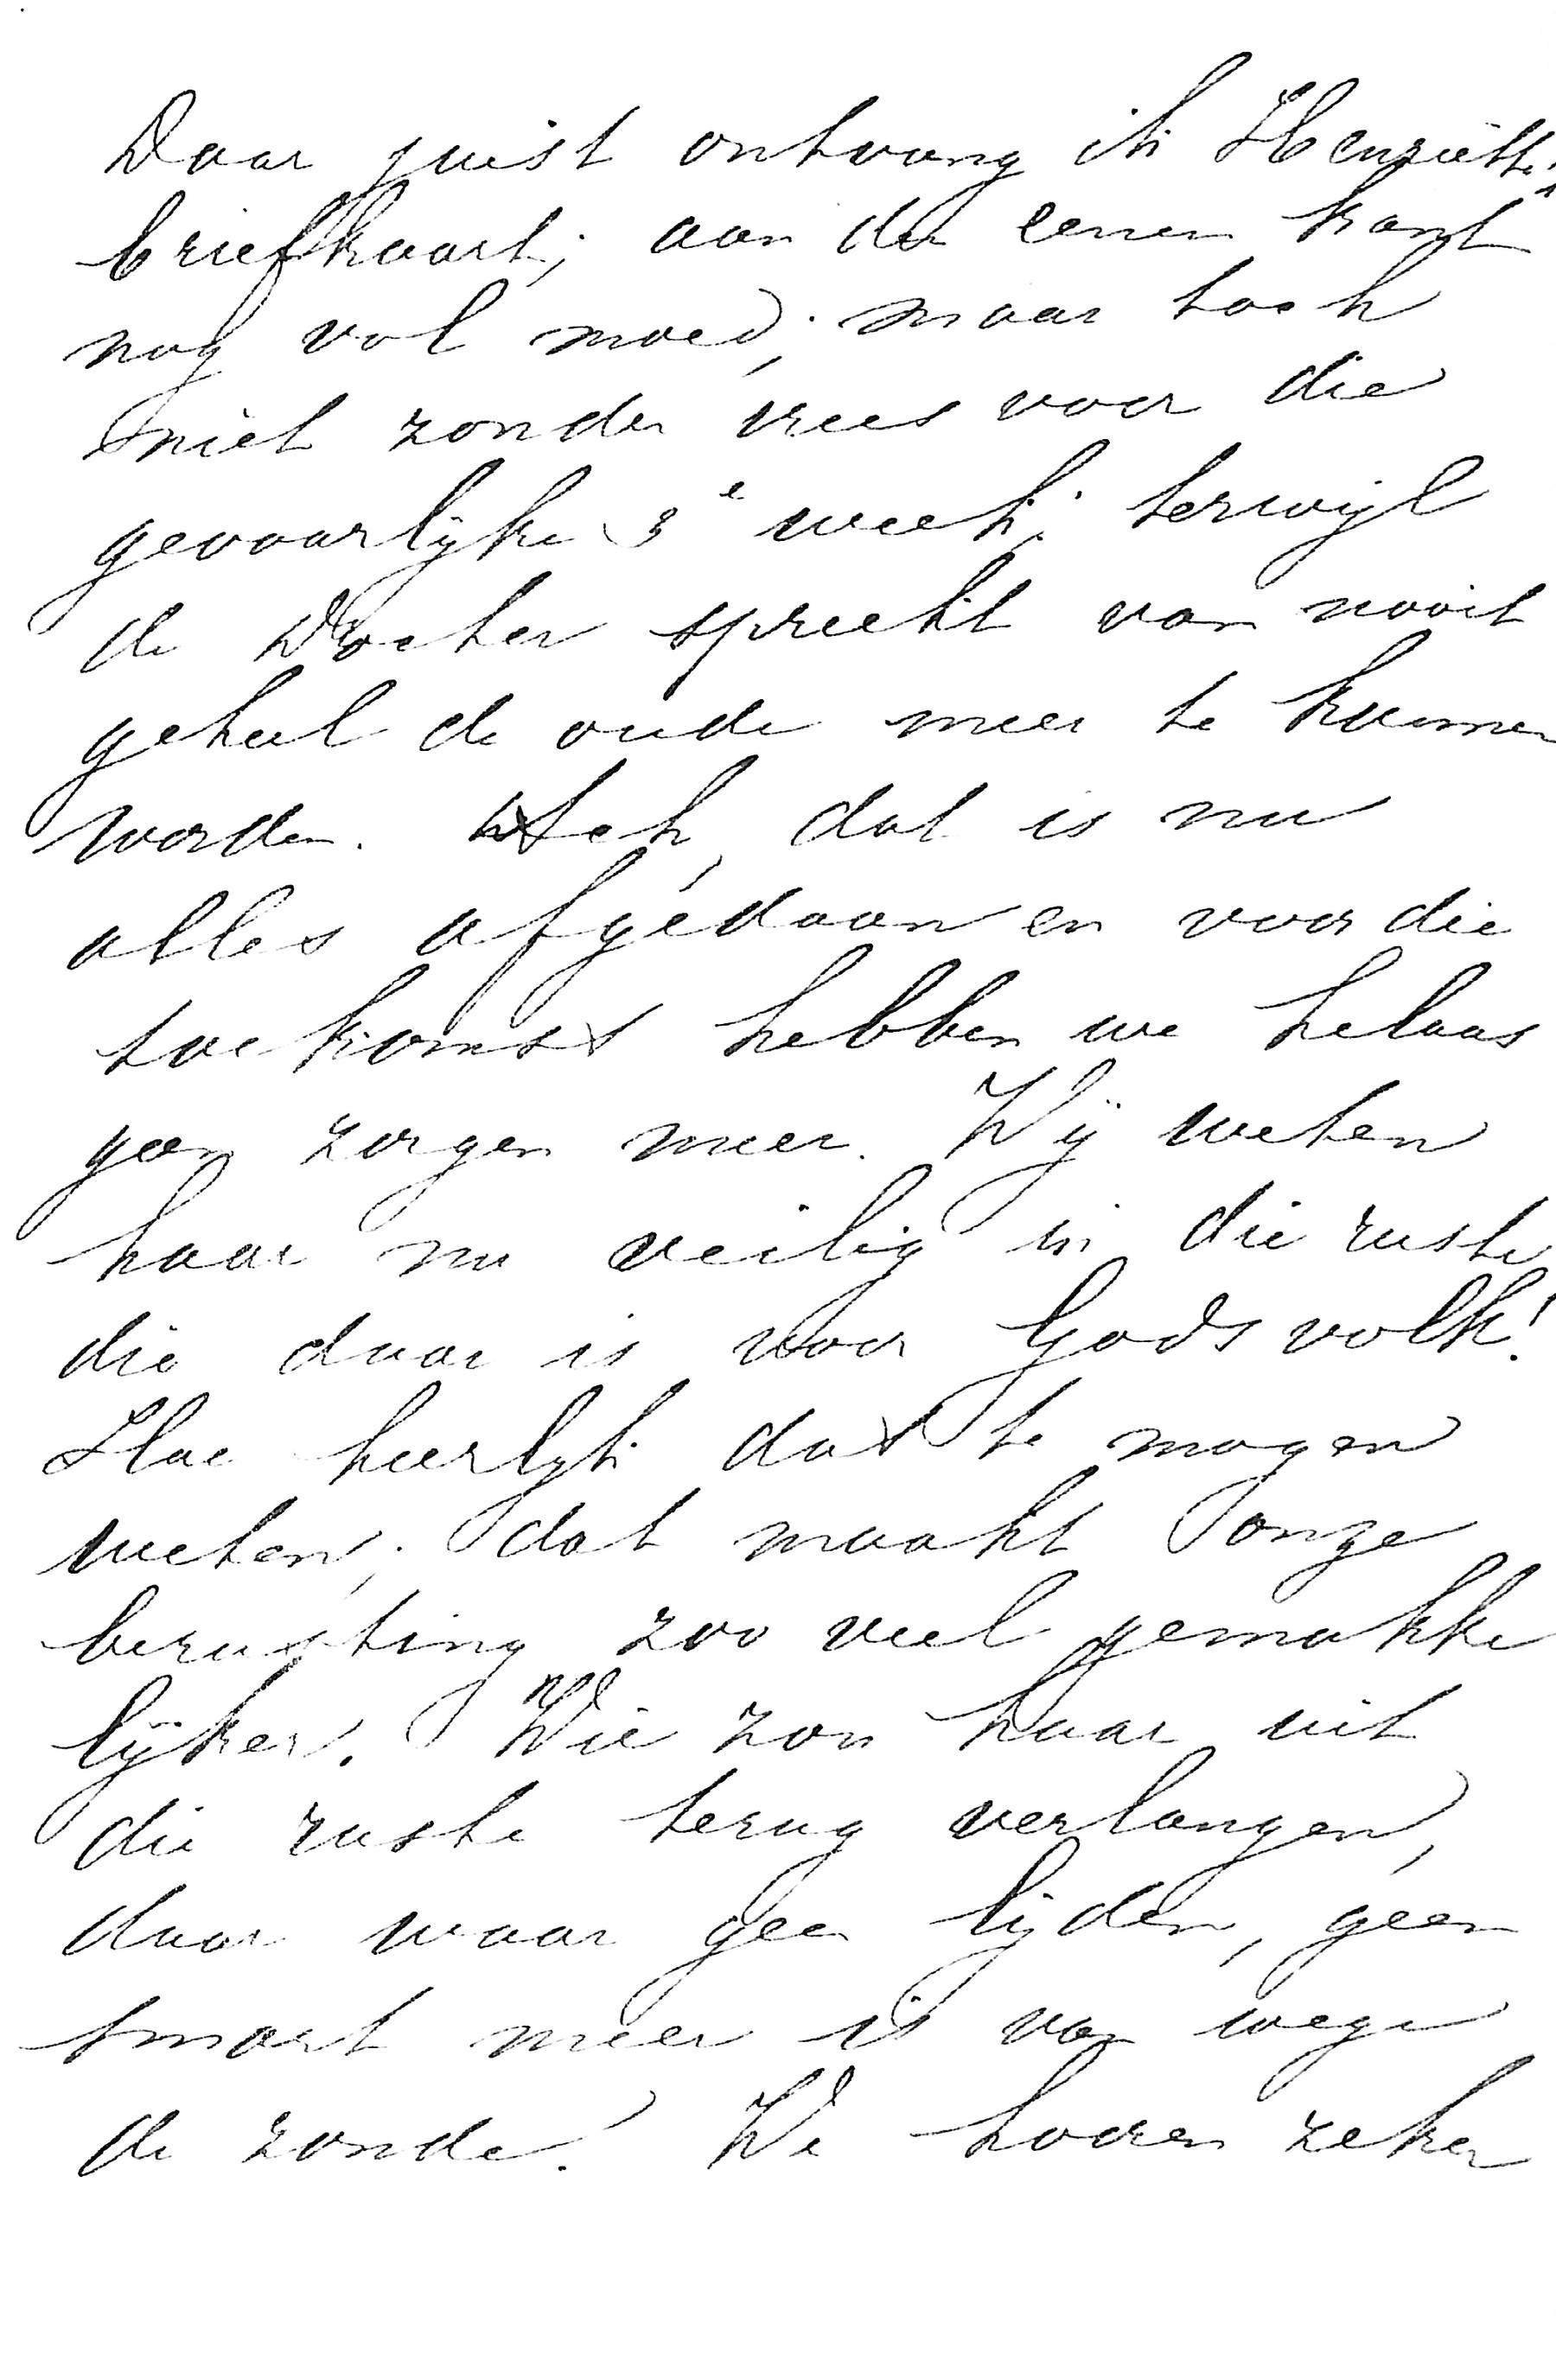 Daar juist ontvang ik Henriëtte's
briefkaart; aan den eenen kant
nog vol moed; maar toch
niet zonder vrees voor die
gevaarlijke 3e week; terwijl
de Docter spreekt van nooit
geheel de oude meer te kunnen
worden. Ach, dat is nu
alles afgedaan en voor die
toekomst hebben we helaas
geen zorgen meer. Wij weten
haar nu veilig in die ruste,
die daar is voor Gods volk!
Hoe heerlijk dat te mogen
weten; dat maakt onze
berusting zoo veel gemakke
lijker. Wie zou haar uit
die ruste terug verlangen,
daar waar geen lijden, geen
smart meer is van wege
de zonde! We hooren zeker